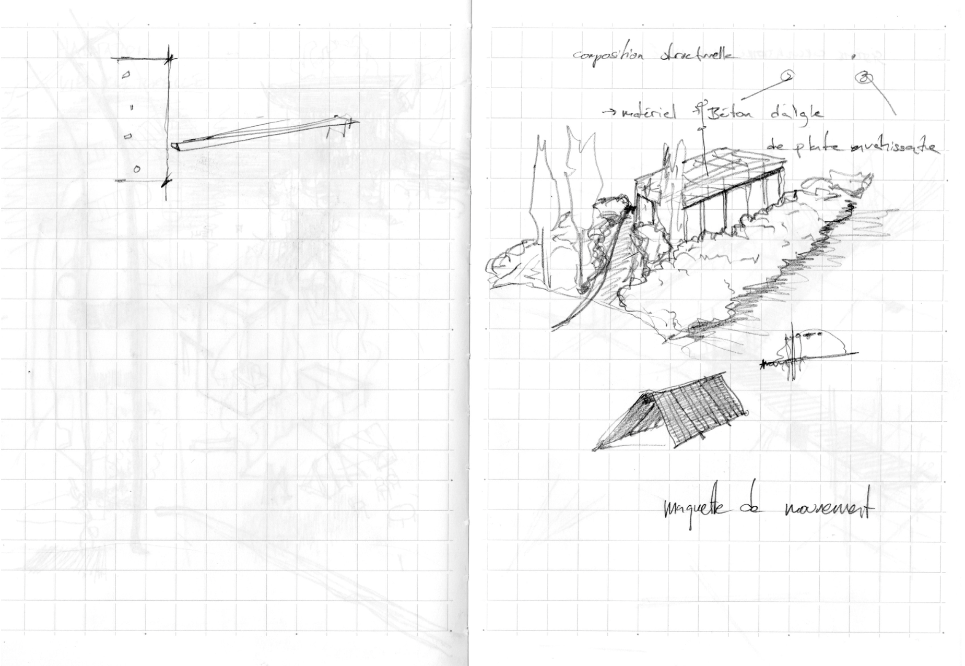 composition structurelle
→ matériel Béton d'algue
de plante envahissante
maquette de mouvement